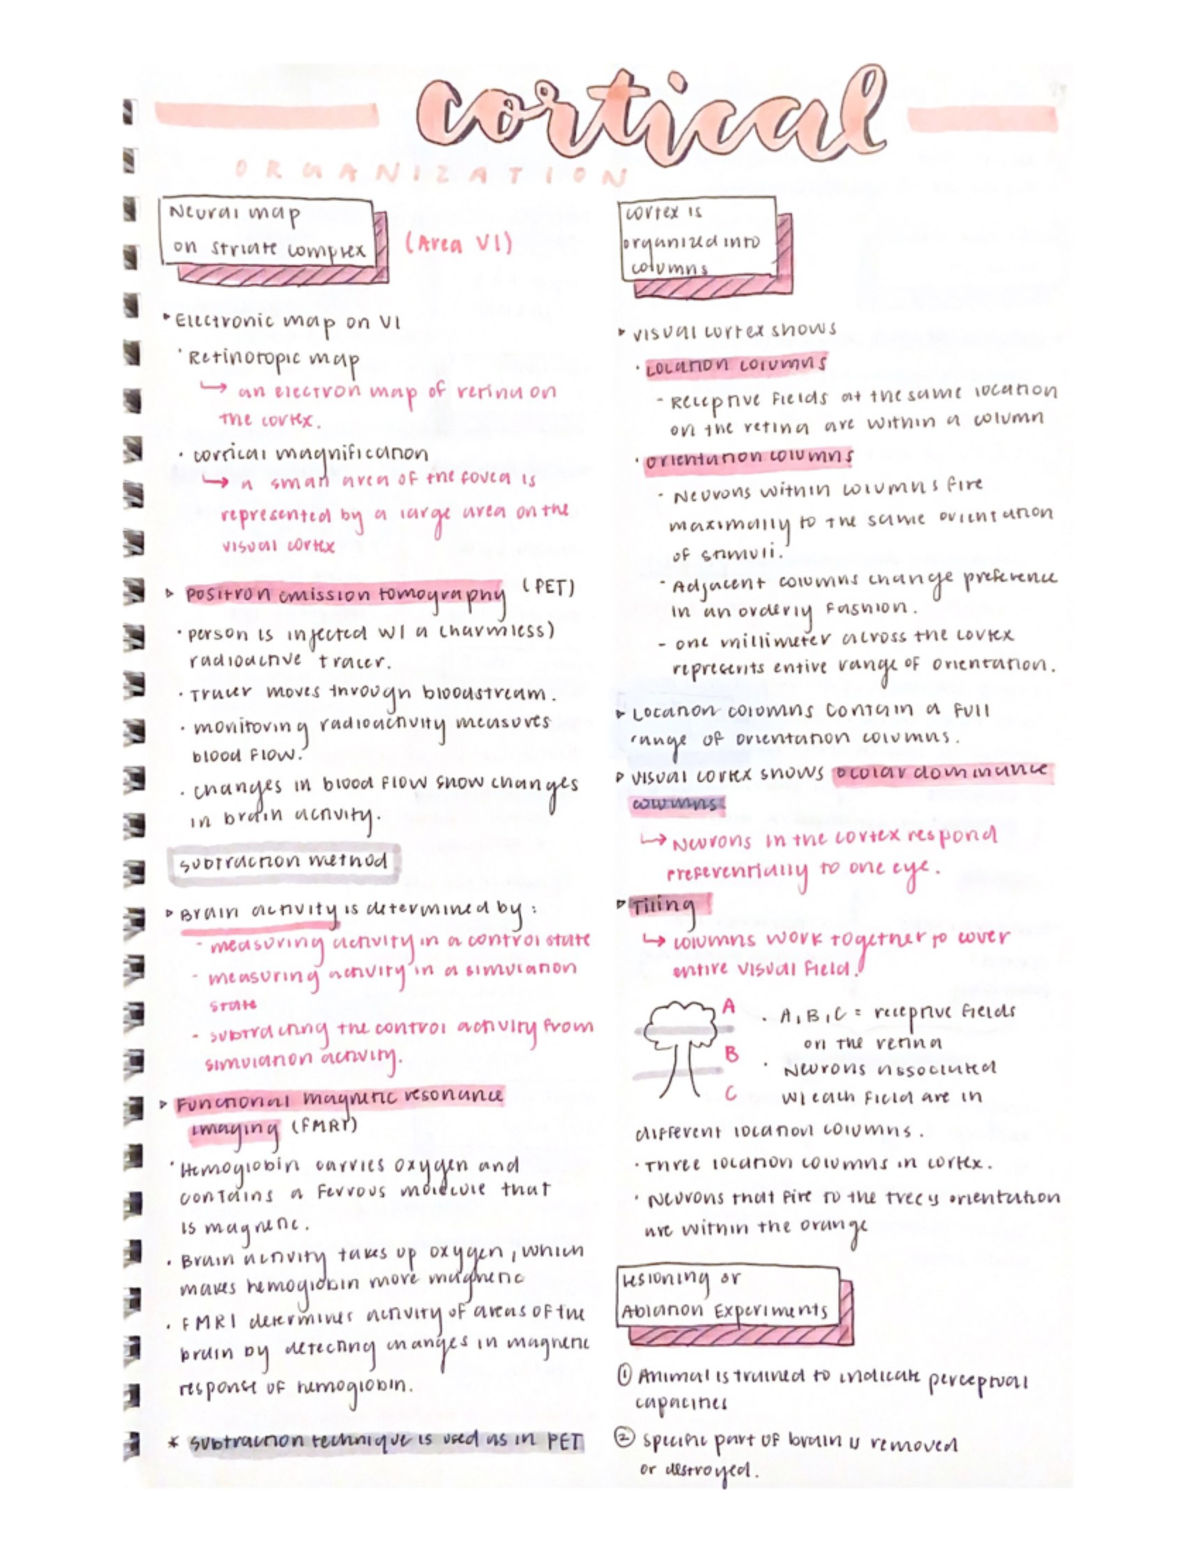 cortical
ORGANIZATION
Neural map
on striate complex
(Area V1)
Electronic map on V1
Retinotopic map
↳ an electron map of retina on
the cortex.
cortical magnification
↳ a small area of the fovea is
represented by a large area on the
visual cortex
positron emission tomography (PET)
person is injected w/ a (harmless)
radioactive tracer.
Tracer moves through bloodstream.
monitoring radioactivity measures
blood flow.
changes in blood flow show changes
in brain activity.
subtraction method
Brain activity is determined by:
- measuring activity in a control state
- measuring activity in a simulation
state
- subtracting the control activity from
simulation activity.
Functional magnetic resonance
imaging (FMRI)
Hemoglobin carries oxygen and
contains a ferrous molecule that
is magnetic.
Brain activity takes up oxygen, which
makes hemoglobin more magnetic
FMRI determines activity of areas of the
brain by detecting changes in magnetic
response of hemoglobin.
* subtraction technique is used as in PET
cortex is
organized into
columns
visual cortex shows
location columns
- Receptive fields at the same location
on the retina are within a column
orientation columns
- Neurons within columns fire
maximally to the same orientation
of stimuli.
- Adjacent columns change preference
in an orderly fashion.
- one millimeter across the cortex
represents entire range of orientation.
Location columns contain a full
range of orientation columns.
visual cortex shows ocular dominance
columns
↳ Neurons in the cortex respond
preferentially to one eye.
Tiling
↳ columns work together to cover
entire visual field.
A
B
C
A, B, C = receptive fields
on the retina
Neurons associated
w/ each field are in
different location columns.
Three location columns in cortex.
Neurons that fire to the trees orientation
are within the orange
Lesioning or
Ablation Experiments
① Animal is trained to indicate perceptual
capacities
② specific part of brain is removed
or destroyed.